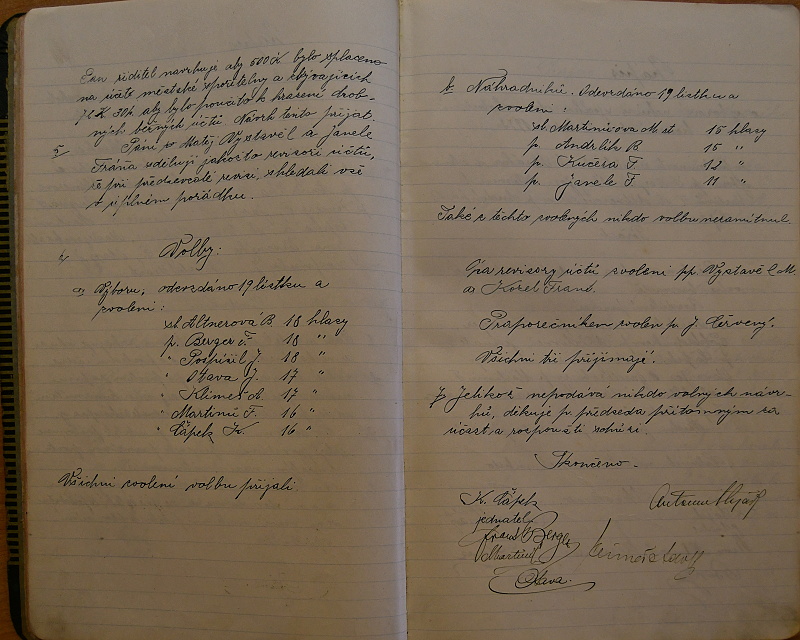 Pan ředitel navrhuje aby 500 K bylo splaceno
na účet městské spořitelny a zbývajících
71 K 30 h. aby bylo použito k hrazení drob-
ných běžných účtů. Návrh tento přijat.
5/ Páni p. Matěj Vystavěl a Janele
Fráňa sdělují jakožto revisoři účtů,
že při předsevzaté revisi, shledali vše
v úplném pořádku.
Volby:
a, Výboru, odevzdáno 19 lístku a
zvoleni:
sl. Altnerová B. 18 hlasy
p. Berger F. 18 "
" Pospíšil J. 18 "
" Otava J. 17 "
" Klimeš A. 17 "
" Martinů F. 16 "
" Čápek K. 16 "
Všichni zvolení volbu přijali.
b, Náhradníků. Odevzdáno 19 lístku a
zvoleni:
sl. Martinicova M. st 15 hlasy
p. Andrlík B 15 "
p. Kučera F. 12 "
p. Janele F. 11 "
Také z těchto zvolených nikdo volbu neramítnul.
Za revisory účtů zvoleni pp. Vystavěl M.
a Kozel Franc.
Praporečníkem zvolen p. J. Červený.
Všichni tři přijímají.
7, Jelikož nepodává nikdo volných návr-
hů, děkuje p. předseda přítomným za
účast a rozpouští schůzi.
Skončeno.
K. Čápek
jednatel
Franc Berger
Martinů
Otava.
Antonín